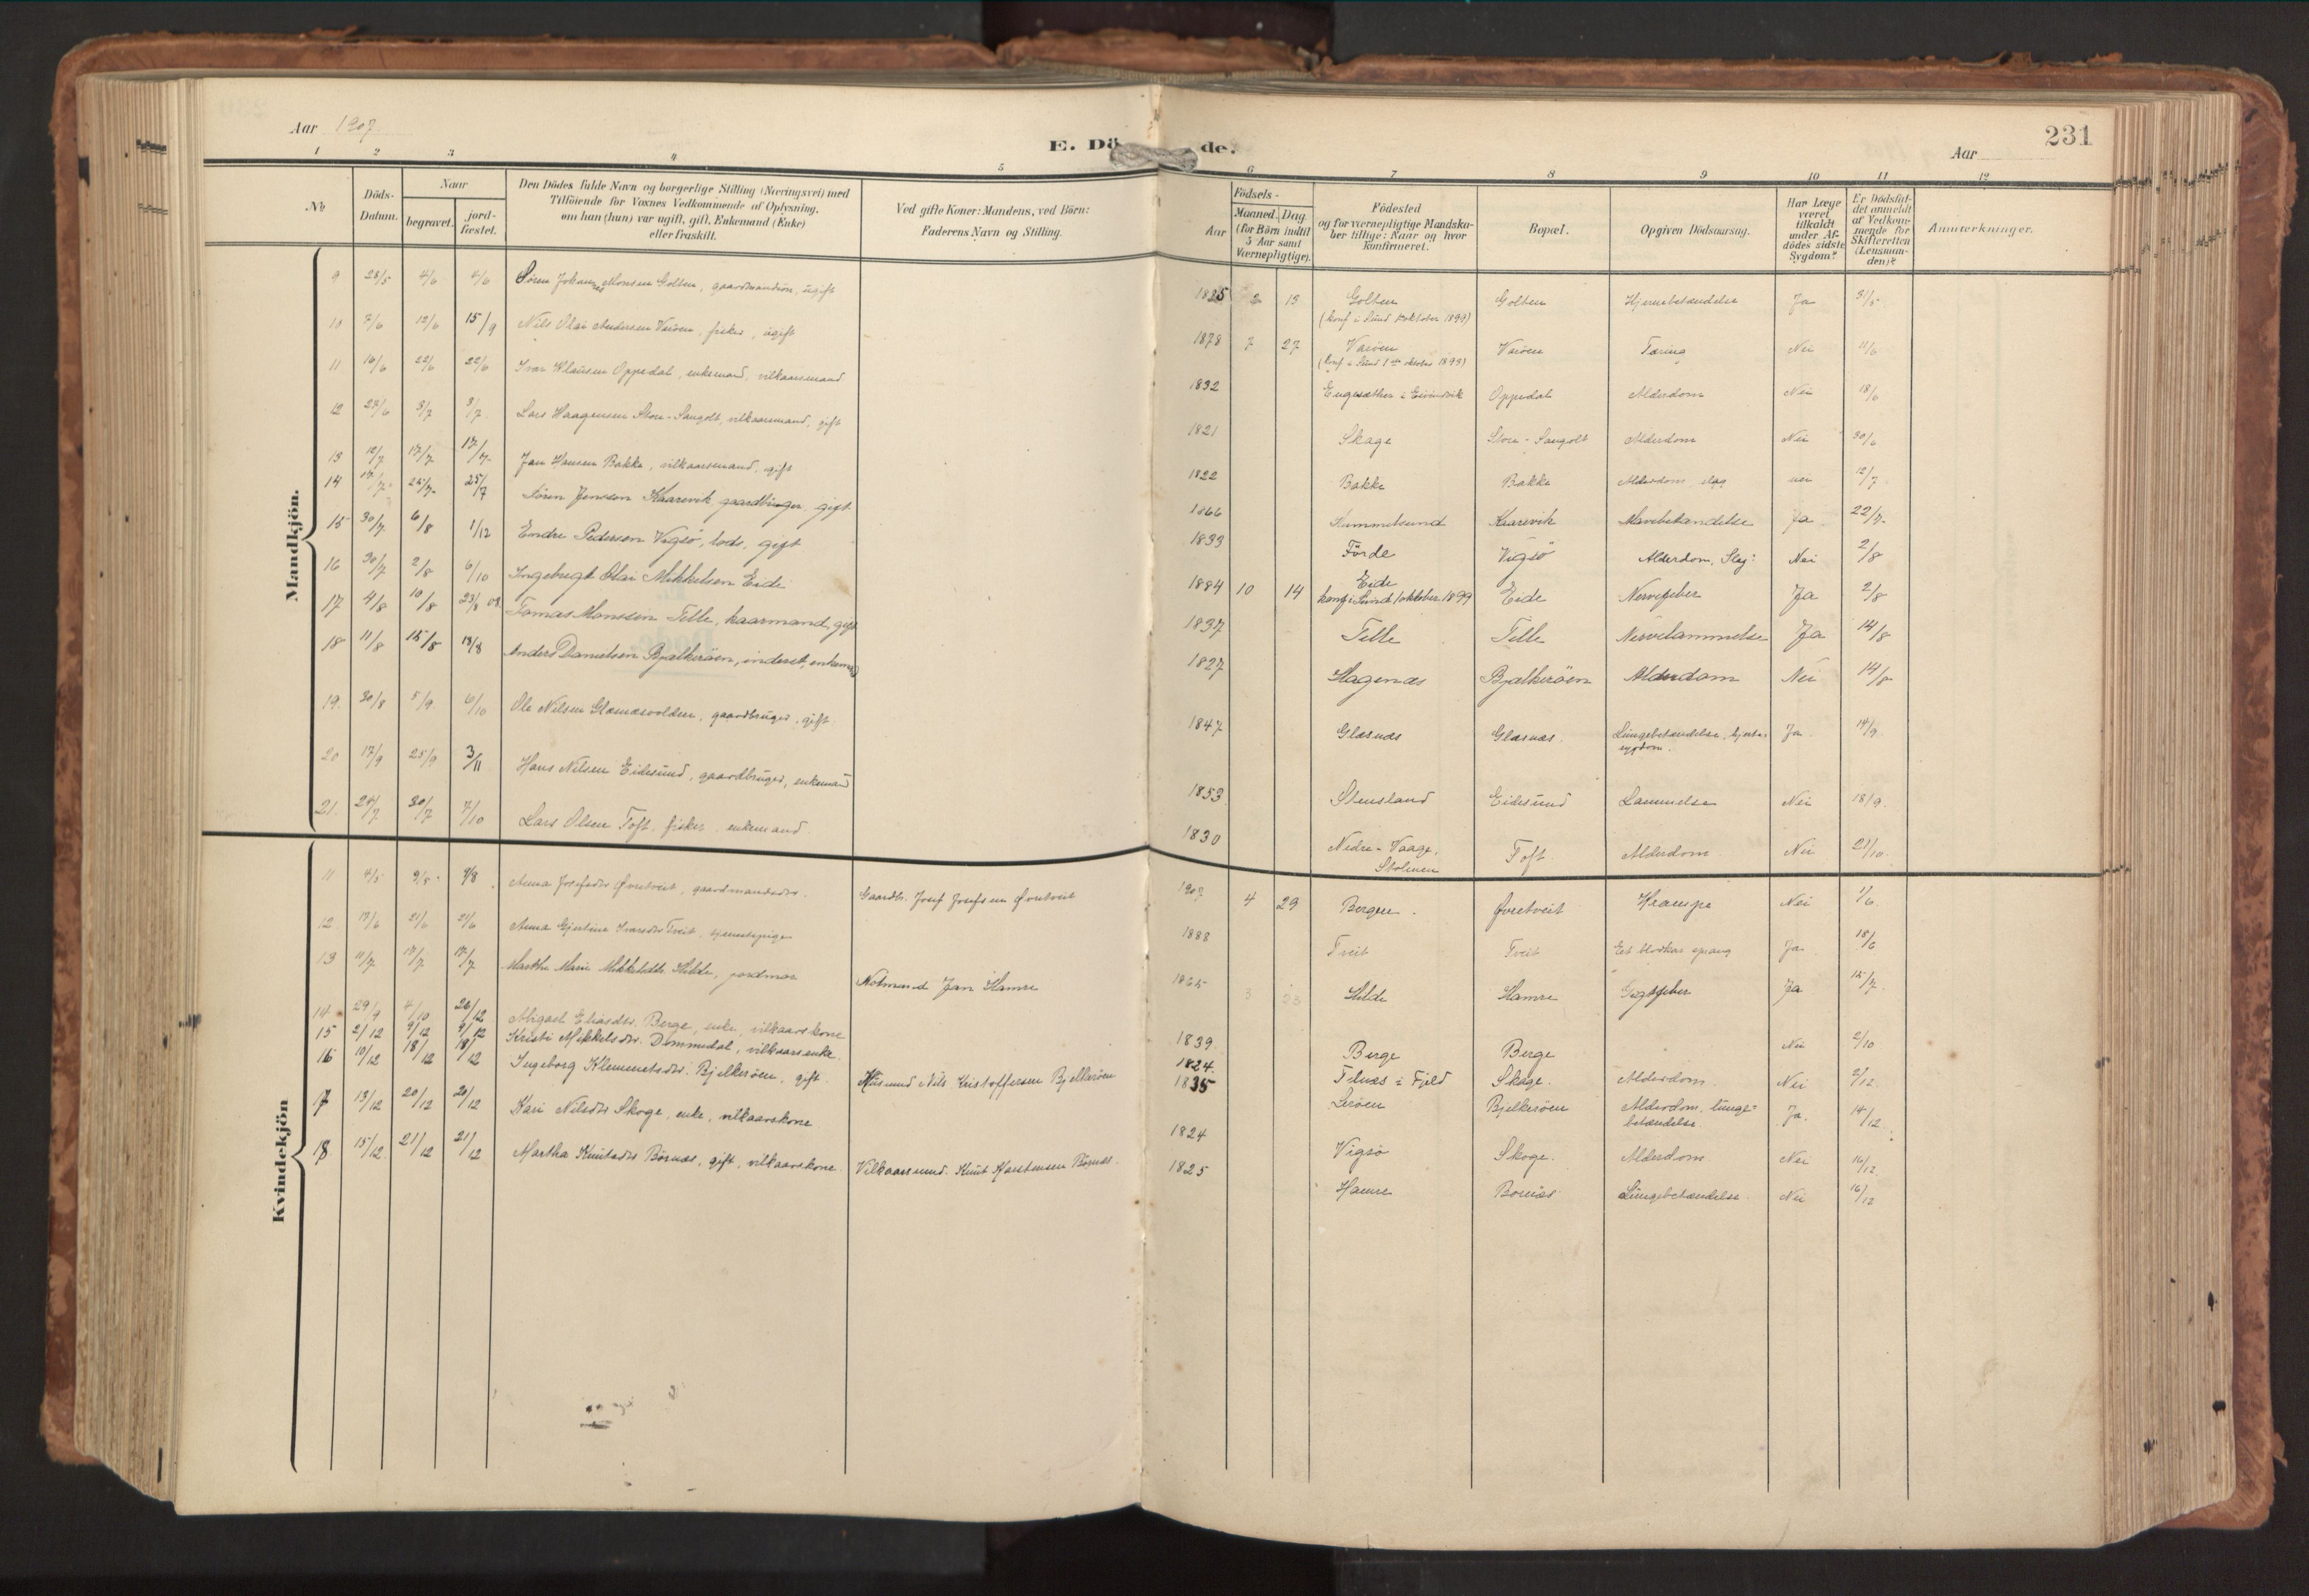 Aar 1907.
E. Dö de.
Aar
231
1 2 3 4 5 6 7 8 9 10 11 12
No
Döds-Datum.
Naar
begravet.
jord-fæstet.
Den Dödes fulde Navn og borgerlige Stilling (Næringsvei) med
Tilföiende for Voxnes Vedkommende af Oplysning,
om han (hun) var ugift, gift, Enkemand (Enke)
eller fraskilt.
Ved gifte Koner: Mandens, ved Börn:
Faderens Navn og Stilling.
Födsels-
Aar
Maaned.
Dag.
(for Börn indtil
5 Aar samt
Værnepligtige).
Födested
og for værnepligtige Mandska-
ber tillige: Naar og hvor
konfirmeret.
Bopæl.
Opgiven Dödsaarsag.
Har Læge
været
tilkaldt
under Af-
dödes sidste
Sygdom?
Er Dödsfal-
det anmeldt
af Vedkom-
mende for
Skifteretten
(Lensman-
den)?
Anmærkninger.
Mandkjön.
9 28/5 4/6 4/6 Sören Johannes Monsen Golten, gaardmandsön, ugift 1885 2 13 Golten Golten Hjernebetændelse Ja 31/5
(konf i Sund oktober 1899)
10 7/6 12/6 15/9 Nils Olai Andersen Viröen, fisker, ugift 1878 7 27 Viröen Viröen Tæring Nei 11/6
(konf i Sund 1ste oktober 1893)
11 16/6 22/6 22/6 Ivar Klausen Oppedal, enkemand, vilkaarsmand 1832 Engesæther i Eivindvik Oppedal Alderdom Nei 18/6
12 27/6 3/7 3/7 Lars Haagensen Store-Sangolt, vilkaarsmand, gift 1821 Skage Store-Sangolt Alderdom Nei 30/6
13 12/7 17/7 17/7 Jan Hansen Bakke, vilkaarsmand, gift 1822 Bakke Bakke Alderdom, slag nei 12/7
14 17/7 25/7 25/7 Sören Jensen Kaarevik gaardbruger, gift 1866 Kummelsund Kaarevik Mavebetændelse Ja 22/7
15 30/7 6/8 1/12 Endre Pedersen Vigsö, lods, gift 1833 Förde Vigsö Alderdom, Slag Nei 2/8
16 30/7 2/8 6/10 Ingebrigt Olai Mikkelsen Eide 1884 10 14 Eide Eide Nervefeber Ja 2/8
konf i Sund 1 oktober 1899
17 4/8 10/8 23/8 08. Tomas Monssen Telle, kaarmand, gift 1837 Telle Telle Nervelammelse Ja 14/8
18 11/8 15/8 18/8 Anders Danielsen Bjælkeröen, inderst, enkem 1827 Hagenæs Bjælkeröen Alderdom Nei 14/8
19. 30/8 5/9. 6/10 Ole Nilsen Glæsnæsvolden, gaardbruger, gift 1847 Glæsnæs Glæsnæs. Lungebetændelse, hjerte-sygdom. Ja 14/9
20 17/9 25/9 3/11 Hans Nilsen Eidesund, gaardbruger, enkemand 1853 Stensland Eidesund Lammelse Nei 18/9
21. 24/7 30/7 7/10 Lars Olsen Toft, fisker, enkemand. 1830 Nedre-Vaage, Stolmen Toft. Alderdom Nei 21/10
Kvindekjön
11 4/5 9/5 4/8 Anna Josefsdtr Øvretveit, gaardmandsdtr. Gaardbr. Josef Josefsen Øvretveit 1907 4 29 Bergen. Øvretveit Krampe Nei 1/6
12 17/6 21/6 21/6 Anna Gjertine Ivarsdtr Tveit, tjenestepige 1888 Tveit Tveit Et blodkar sprang Ja 18/6
13 11/7 17/7 17/7 Martha Marie Mikkelsdtr. Hilde, jordmor Notmand Jan Hamre 1865 3 23 Hilde Hamre Gigtfeber Ja 15/7
14 29/9 4/10 26/12 Abigael Eliasdtr. Berge, enke, vilkaarskone 1839 Berge Berge Nei 2/10
15 2/12 9/12 9/12 Kristi Mikkelsdtr. Dommedal, vilkaarsenke. 1824. Telnæs i Fjeld Skage. Alderdom Nei 2/12
16 10/12 18/12 18/12 Ingeborg Klemmetsdtr. Bjelkeröen, gift Husmand Nils Kristoffersen Bjelkeröen 1835 Leröen Bjelkeröen Alderdom, lunge-betændelse Ja. 14/12
17 13/12 20/12 20/12 Kari Nilsdtr Skoge, enke, vilkaarskone 1824 Vigsö Skoge. Alderdom Nei 16/12
18 15/12 21/12 21/12 Martha Knutsdtr Börnæs, gift, vilkaarskone. Vilkaarsmand. Knut Karstensen Börnæs. 1825 Hamre Bornæs Lungebetændelse Nei 16/12